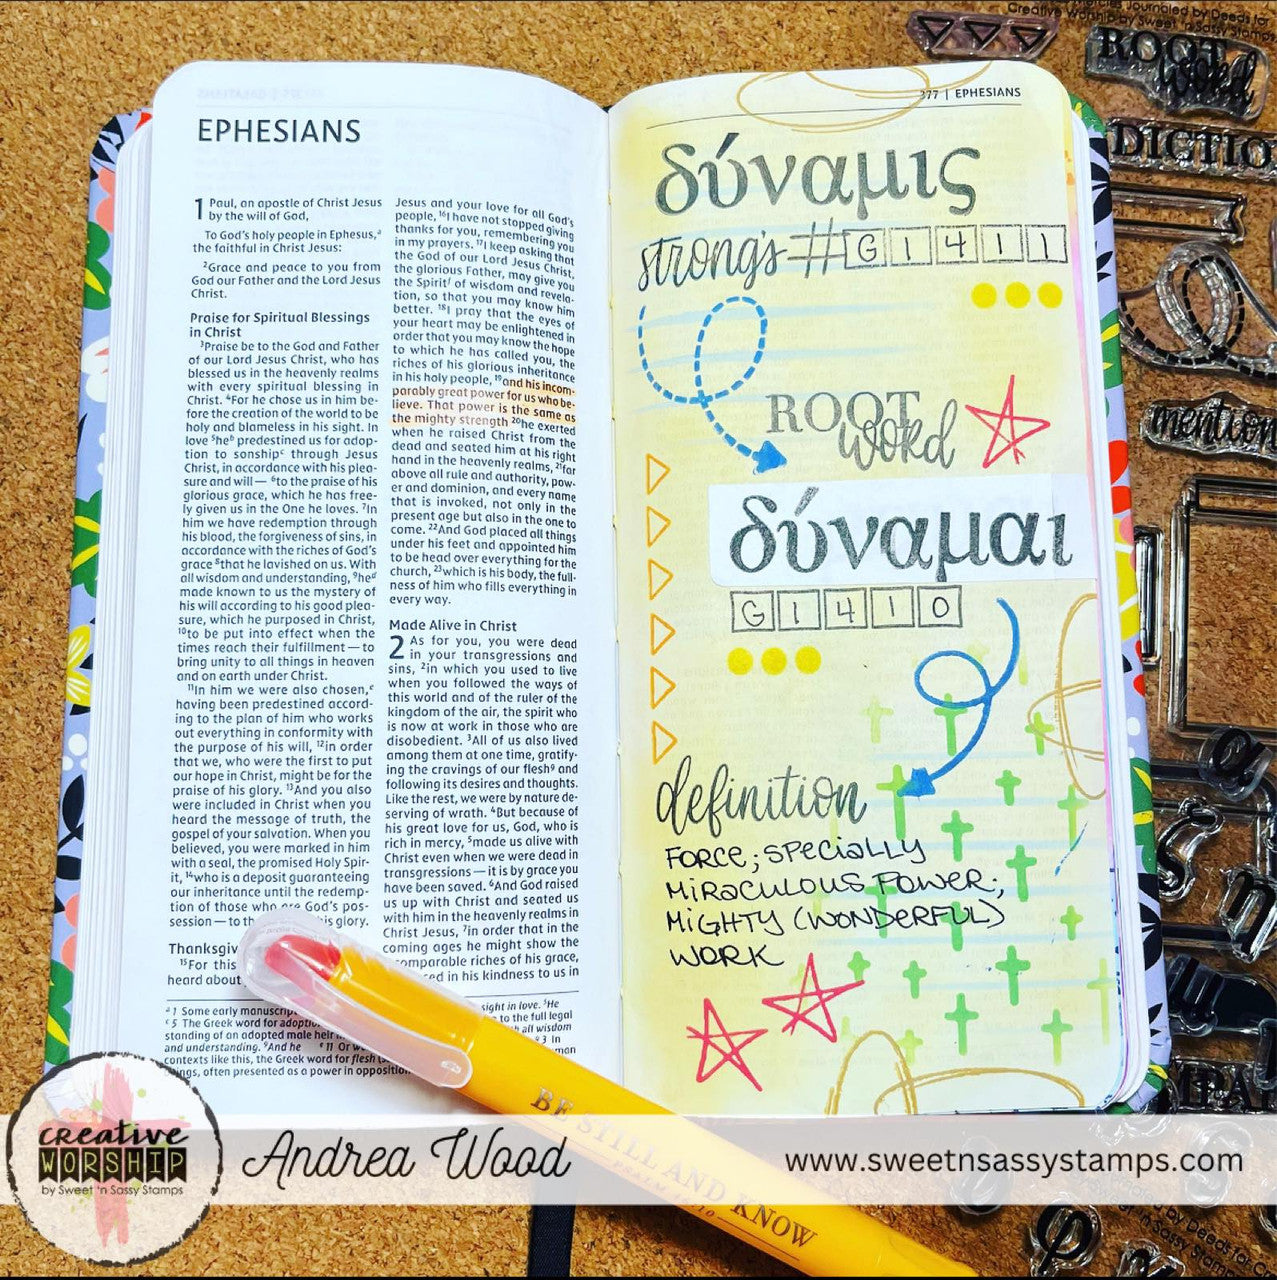 EPHESIANS
1 Paul, an apostle of Christ Jesus
by the will of God,
To God's holy people in Ephesus,a
the faithful in Christ Jesus:
2Grace and peace to you from
God our Father and the Lord Jesus
Christ.
Praise for Spiritual Blessings
in Christ
3Praise be to the God and Father
of our Lord Jesus Christ, who has
blessed us in the heavenly realms
with every spiritual blessing in
Christ. 4For he chose us in him be-
fore the creation of the world to be
holy and blameless in his sight. In
love 5heb predestined us for adop-
tion to sonshipc through Jesus
Christ, in accordance with his plea-
sure and will— 6to the praise of his
glorious grace, which he has free-
ly given us in the One he loves. 7In
him we have redemption through
his blood, the forgiveness of sins, in
accordance with the riches of God's
grace 8that he lavished on us. With
all wisdom and understanding, 9hed
made known to us the mystery of
his will according to his good plea-
sure, which he purposed in Christ,
10to be put into effect when the
times reach their fulfillment—to
bring unity to all things in heaven
and on earth under Christ.
11In him we were also chosen,e
having been predestined accord-
ing to the plan of him who works
out everything in conformity with
the purpose of his will, 12in order
that we, who were the first to put
our hope in Christ, might be for the
praise of his glory. 13And you also
were included in Christ when you
heard the message of truth, the
gospel of your salvation. When you
believed, you were marked in him
with a seal, the promised Holy Spir-
it, 14who is a deposit guaranteeing
our inheritance until the redemp-
tion of those who are God's pos-
session—to the his glory.
Thanksgiv
15For this
heard about
Jesus and your love for all God's
people, 16I have not stopped giving
thanks for you, remembering you
in my prayers. 17I keep asking that
the God of our Lord Jesus Christ,
the glorious Father, may give you
the Spiritf of wisdom and revela-
tion, so that you may know him
better. 18I pray that the eyes of
your heart may be enlightened in
order that you may know the hope
to which he has called you, the
riches of his glorious inheritance
in his holy people, 19and his incom-
parably great power for us who be-
lieve. That power is the same as
the mighty strength 20he exerted
when he raised Christ from the
dead and seated him at his right
hand in the heavenly realms, 21far
above all rule and authority, pow-
er and dominion, and every name
that is invoked, not only in the
present age but also in the one to
come. 22And God placed all things
under his feet and appointed him
to be head over everything for the
church, 23which is his body, the full-
ness of him who fills everything in
every way.
Made Alive in Christ
2 As for you, you were dead
in your transgressions and
sins, 2in which you used to live
when you followed the ways of
this world and of the ruler of the
kingdom of the air, the spirit who
is now at work in those who are
disobedient. 3All of us also lived
among them at one time, gratify-
ing the cravings of our fleshg and
following its desires and thoughts.
Like the rest, we were by nature de-
serving of wrath. 4But because of
his great love for us, God, who is
rich in mercy, 5made us alive with
Christ even when we were dead in
transgressions—it is by grace you
have been saved. 6And God raised
us up with Christ and seated us
with him in the heavenly realms in
Christ Jesus, 7in order that in the
coming ages he might show the
comparable riches of his grace,
in his kindness to us in
a 1 Some early manuscrip sight in love. 5He
c 5 The Greek word for adoptio to the full legal
standing of an adopted male heir h all wisdom
and understanding. 9And he e 11 Or w g 3 In
contexts like this, the Greek word for flesh man
ings, often presented as a power in opposition
377 | EPHESIANS
δύναμις
strong's # G1411
ROOT
word
δύναμαι
G1410
definition
FORCE; SPECIALLY
MIRACULOUS POWER;
MIGHTY (WONDERFUL)
WORK
BE STILL AND KNOW
PSALM 46:10
Journaled by Deeds for
Creative Worship by Sweet 'n Sassy Stamps
ROOT
word
DICTIO
mention
creative
WORSHIP
by Sweet 'n Sassy Stamps
Andrea Wood
www.sweetnsassystamps.com